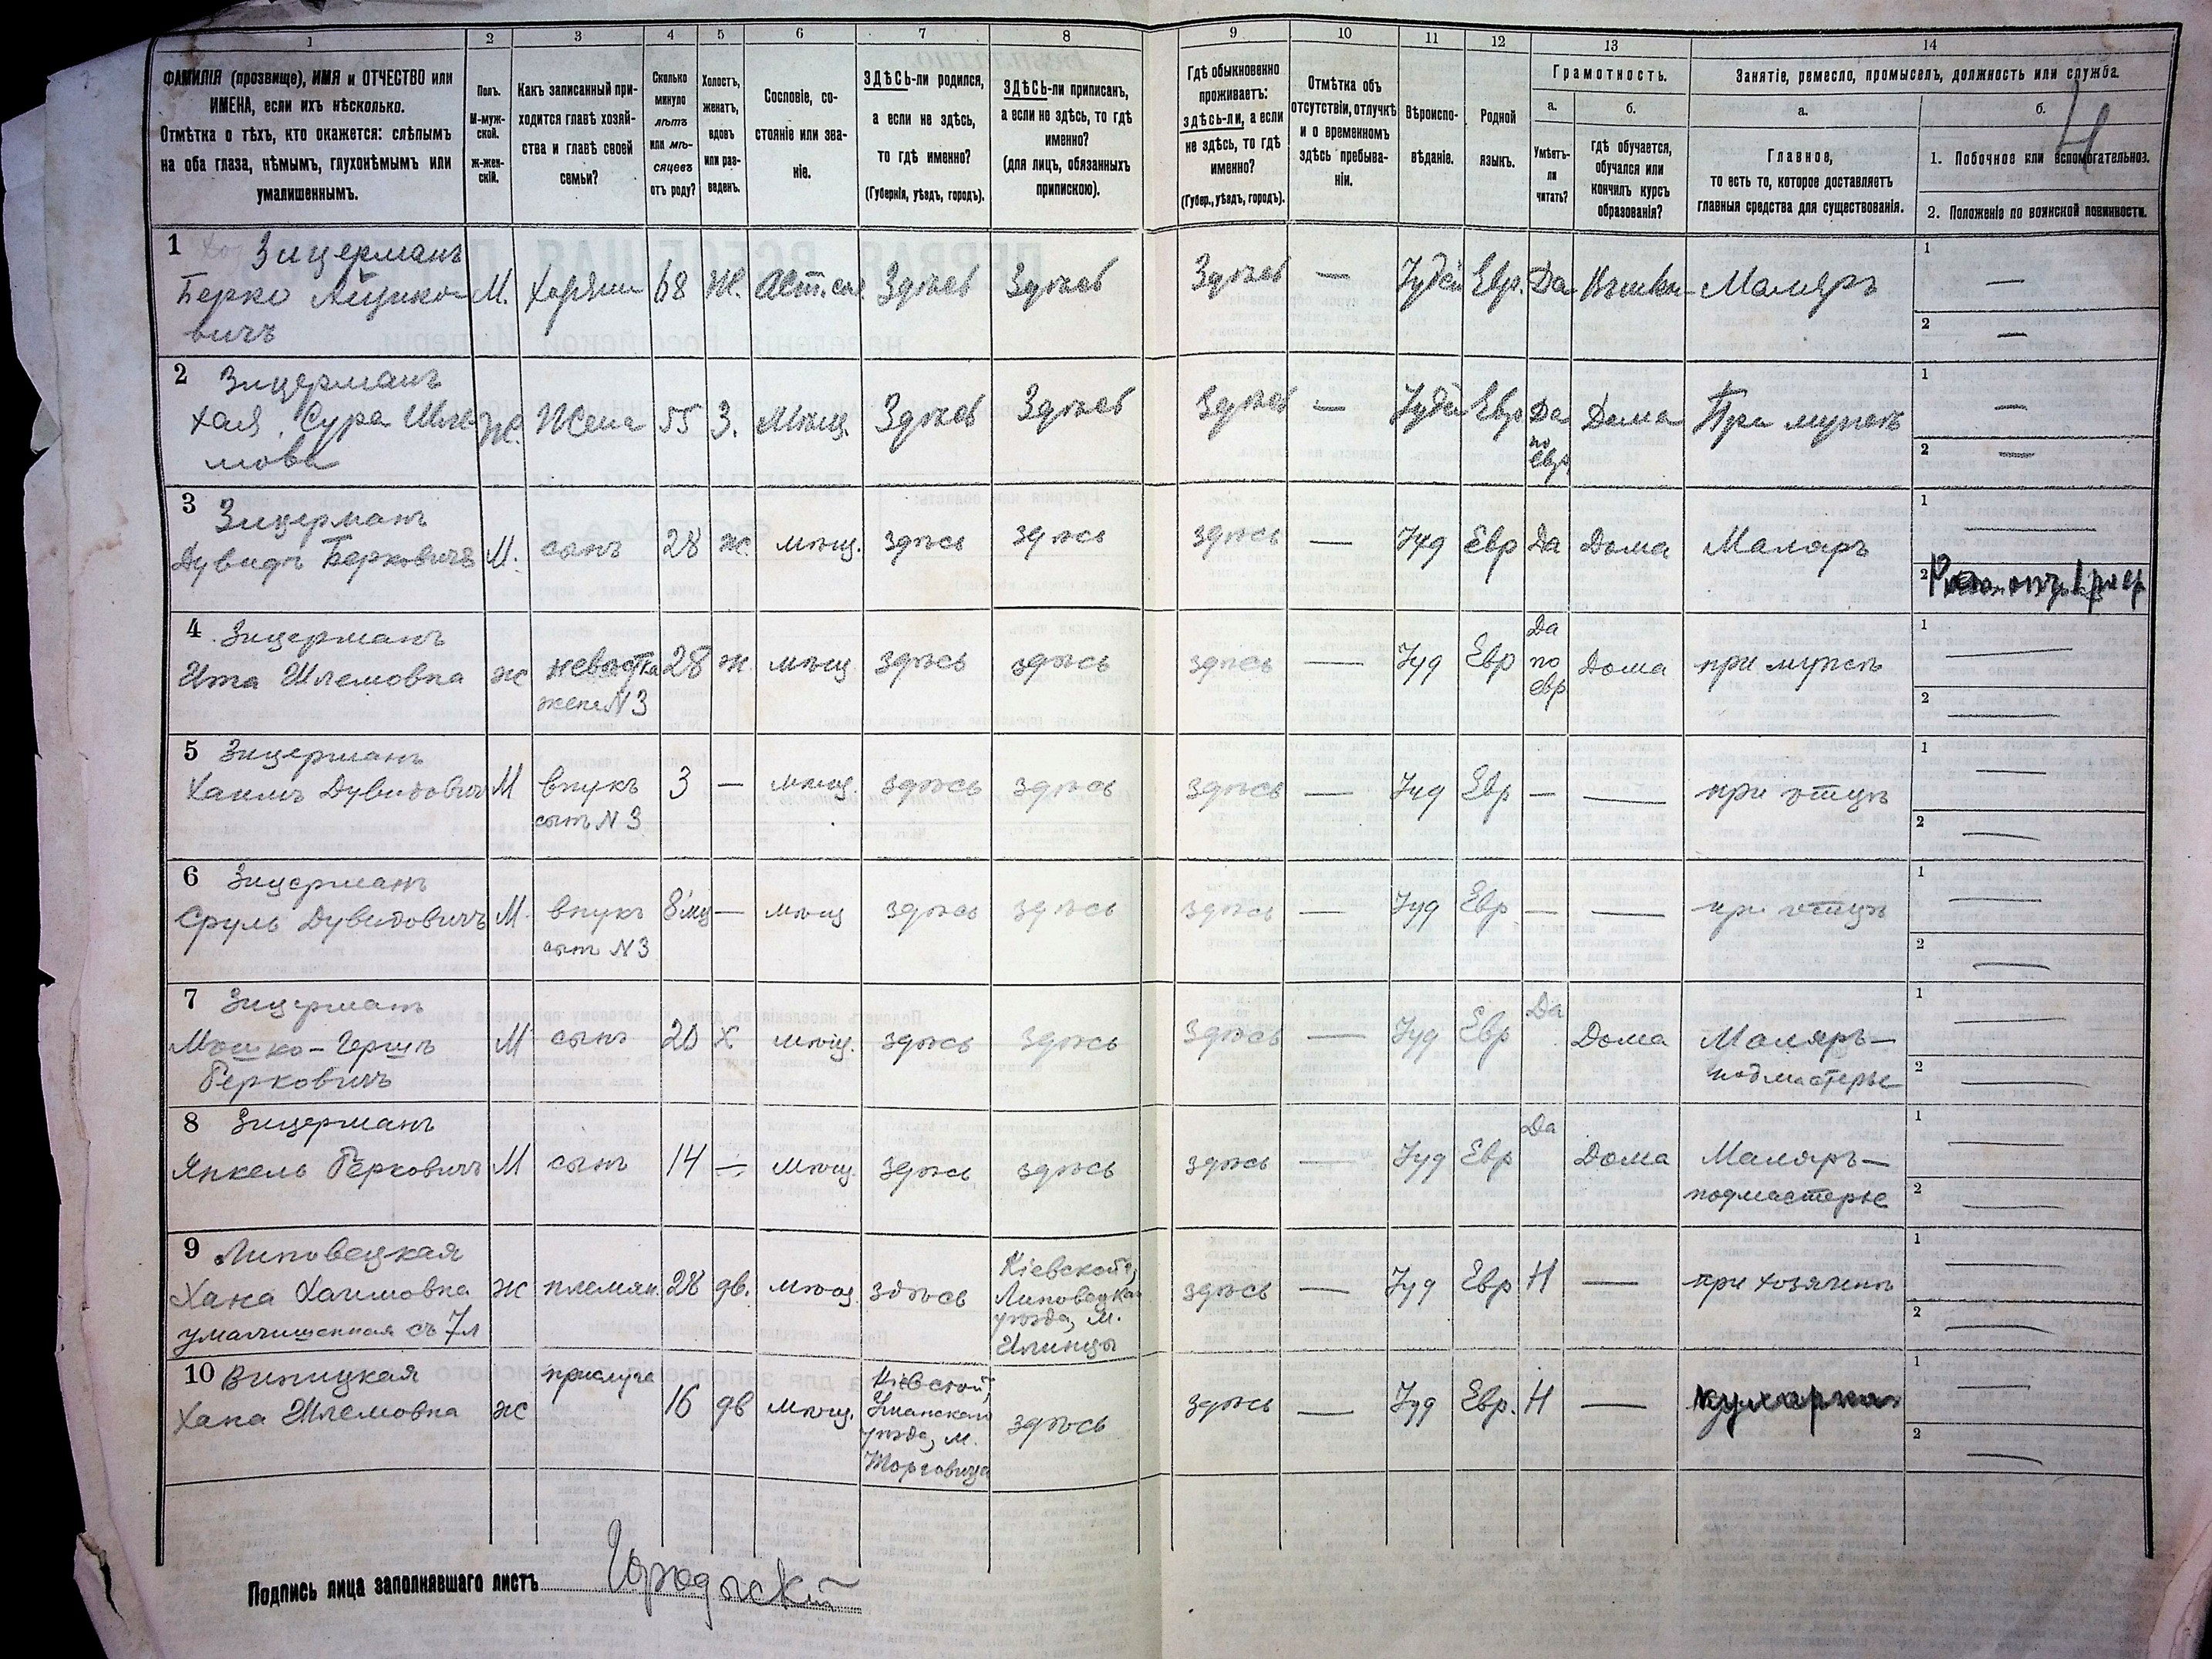 1 2 3 4 5 6 7 8 9 10 11 12 13 14
ФАМИЛІЯ (прозвище), ИМЯ и ОТЧЕСТВО или
ИМЕНА, если ихъ нѣсколько.
Отмѣтка о тѣхъ, кто окажется: слѣпымъ
на оба глаза, нѣмымъ, глухонѣмымъ или
умалишеннымъ.
Полъ.
М-муж-
ской.
ж-жен-
скій.
Какъ записанный при-
ходится главѣ хозяй-
ства и главѣ своей
семьи?
Сколько
минуло
лѣтъ
или мѣ-
сяцевъ
отъ роду?
Холостъ,
женатъ,
вдовъ
или раз-
веденъ.
Сословіе, со-
стояніе или зва-
ніе.
ЗДѢСЬ-ли родился,
а если не здѣсь,
то гдѣ именно?
(Губернія, уѣздъ, городъ).
ЗДѢСЬ-ли приписанъ,
а если не здѣсь, то гдѣ
именно?
(для лицъ, обязанныхъ
припискою).
Гдѣ обыкновенно
проживаетъ:
здѣсь-ли, а если
не здѣсь, то гдѣ
именно?
(Губер., уѣздъ, городъ).
Отмѣтка объ
отсутствіи, отлучкѣ
и о временномъ
здѣсь пребыва-
ніи.
Вѣроиспо-
вѣданіе.
Родной
языкъ.
Грамотность.
а.
Умѣетъ-
ли
читать?
б.
гдѣ обучается,
обучался или
кончилъ курсъ
образованія?
Занятіе, ремесло, промыселъ, должность или служба.
а.
Главное,
то есть то, которое доставляетъ
главныя средства для существованія.
б.
4
1. Побочное или вспомогательное.
2. Положеніе по воинской повинности.
1 Зицерманъ
Берко
вичъ
М. 68 Ж. Здѣсь Здѣсь Здѣсь — Іудей Евр. Да Маляръ
1 —
2 —
2 Зицерманъ
Хая Сура Шле-
мова
Ж. Жена 55 З. Мѣщ. Здѣсь Здѣсь Здѣсь — Іудей Евр Да
по
евр.
Дома При мужѣ
1 —
2 —
3 Зицерманъ
Дувидъ Берковичъ
М. сынъ 28 ж. мѣщ. здѣсь здѣсь здѣсь — Іуд Евр Да Дома Маляръ
1 —
2
4 Зицерманъ
Ита Шлемовна
ж невѣстка
жена N 3
28 ж мѣщ здѣсь здѣсь здѣсь — Іуд Евр Да
по
евр
Дома при мужѣ
1 —
2 —
5 Зицерманъ
Хаимъ Дувидовичъ
М внукъ
сынъ N 3
3 — мѣщ. здѣсь здѣсь здѣсь — Іуд Евр — — при отцѣ
1 —
2 —
6 Зицерманъ
Сруль Дувидовичъ
М внукъ
сынъ N 3
8 мц — мѣщ здѣсь здѣсь здѣсь — Іуд Евр — — при отцѣ
1 —
2 —
7 Зицерманъ
Мошко-Гершъ
Берковичъ
М сынъ 20 х мѣщ. здѣсь здѣсь здѣсь — Іуд Евр Да Дома Маляръ—
подмастерье
1 —
2 —
8 Зицерманъ
Янкель Берковичъ
М сынъ 14 — мѣщ. здѣсь здѣсь здѣсь — Іуд Евр Да Дома Маляръ—
подмастерье
1 —
2 —
9 Липовецкая
Хана Хаимовна
умалишенная съ 7 л
ж племян. 28 дв. мѣщ здѣсь Кіевской г,
Липовецкаго
уѣзда, м.
Илинцы
здѣсь — Іуд Евр Н — при хозяинѣ
1 —
2 —
10 Виницкая
Хана Шлемовна
ж прислуга 16 дв мѣщ. Кіевской,
Уманскаго
уѣзда, м.
Торговица
здѣсь здѣсь — Іуд Евр. Н — кухарка
1 —
2 —
Подпись лица заполнявшаго листъ Городыскій